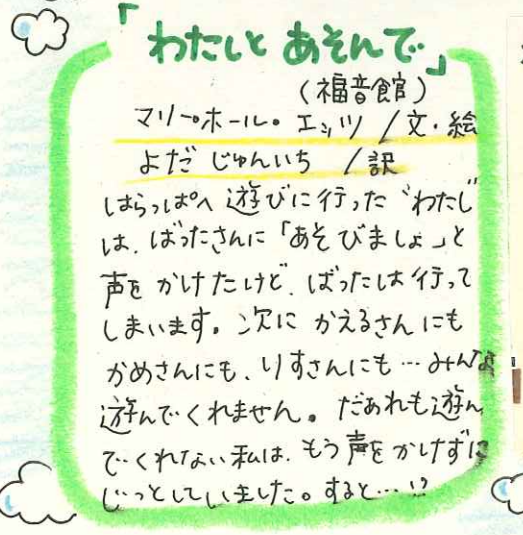 「わたしと あそんで」
(福音館)
マリー・ホール・エッツ / 文・絵
よだ じゅんいち / 訳
はらっぱへ 遊びに行った "わたし"
は、ばったさんに「あそびましょ」と
声を かけたけど、ばったは行って
しまいます。次に かえるさんにも
かめさんにも、りすさんにも…みんな
遊んでくれません。だあれも遊ん
でくれない私は、もう声をかけずに
じっとしていました。すると…!?